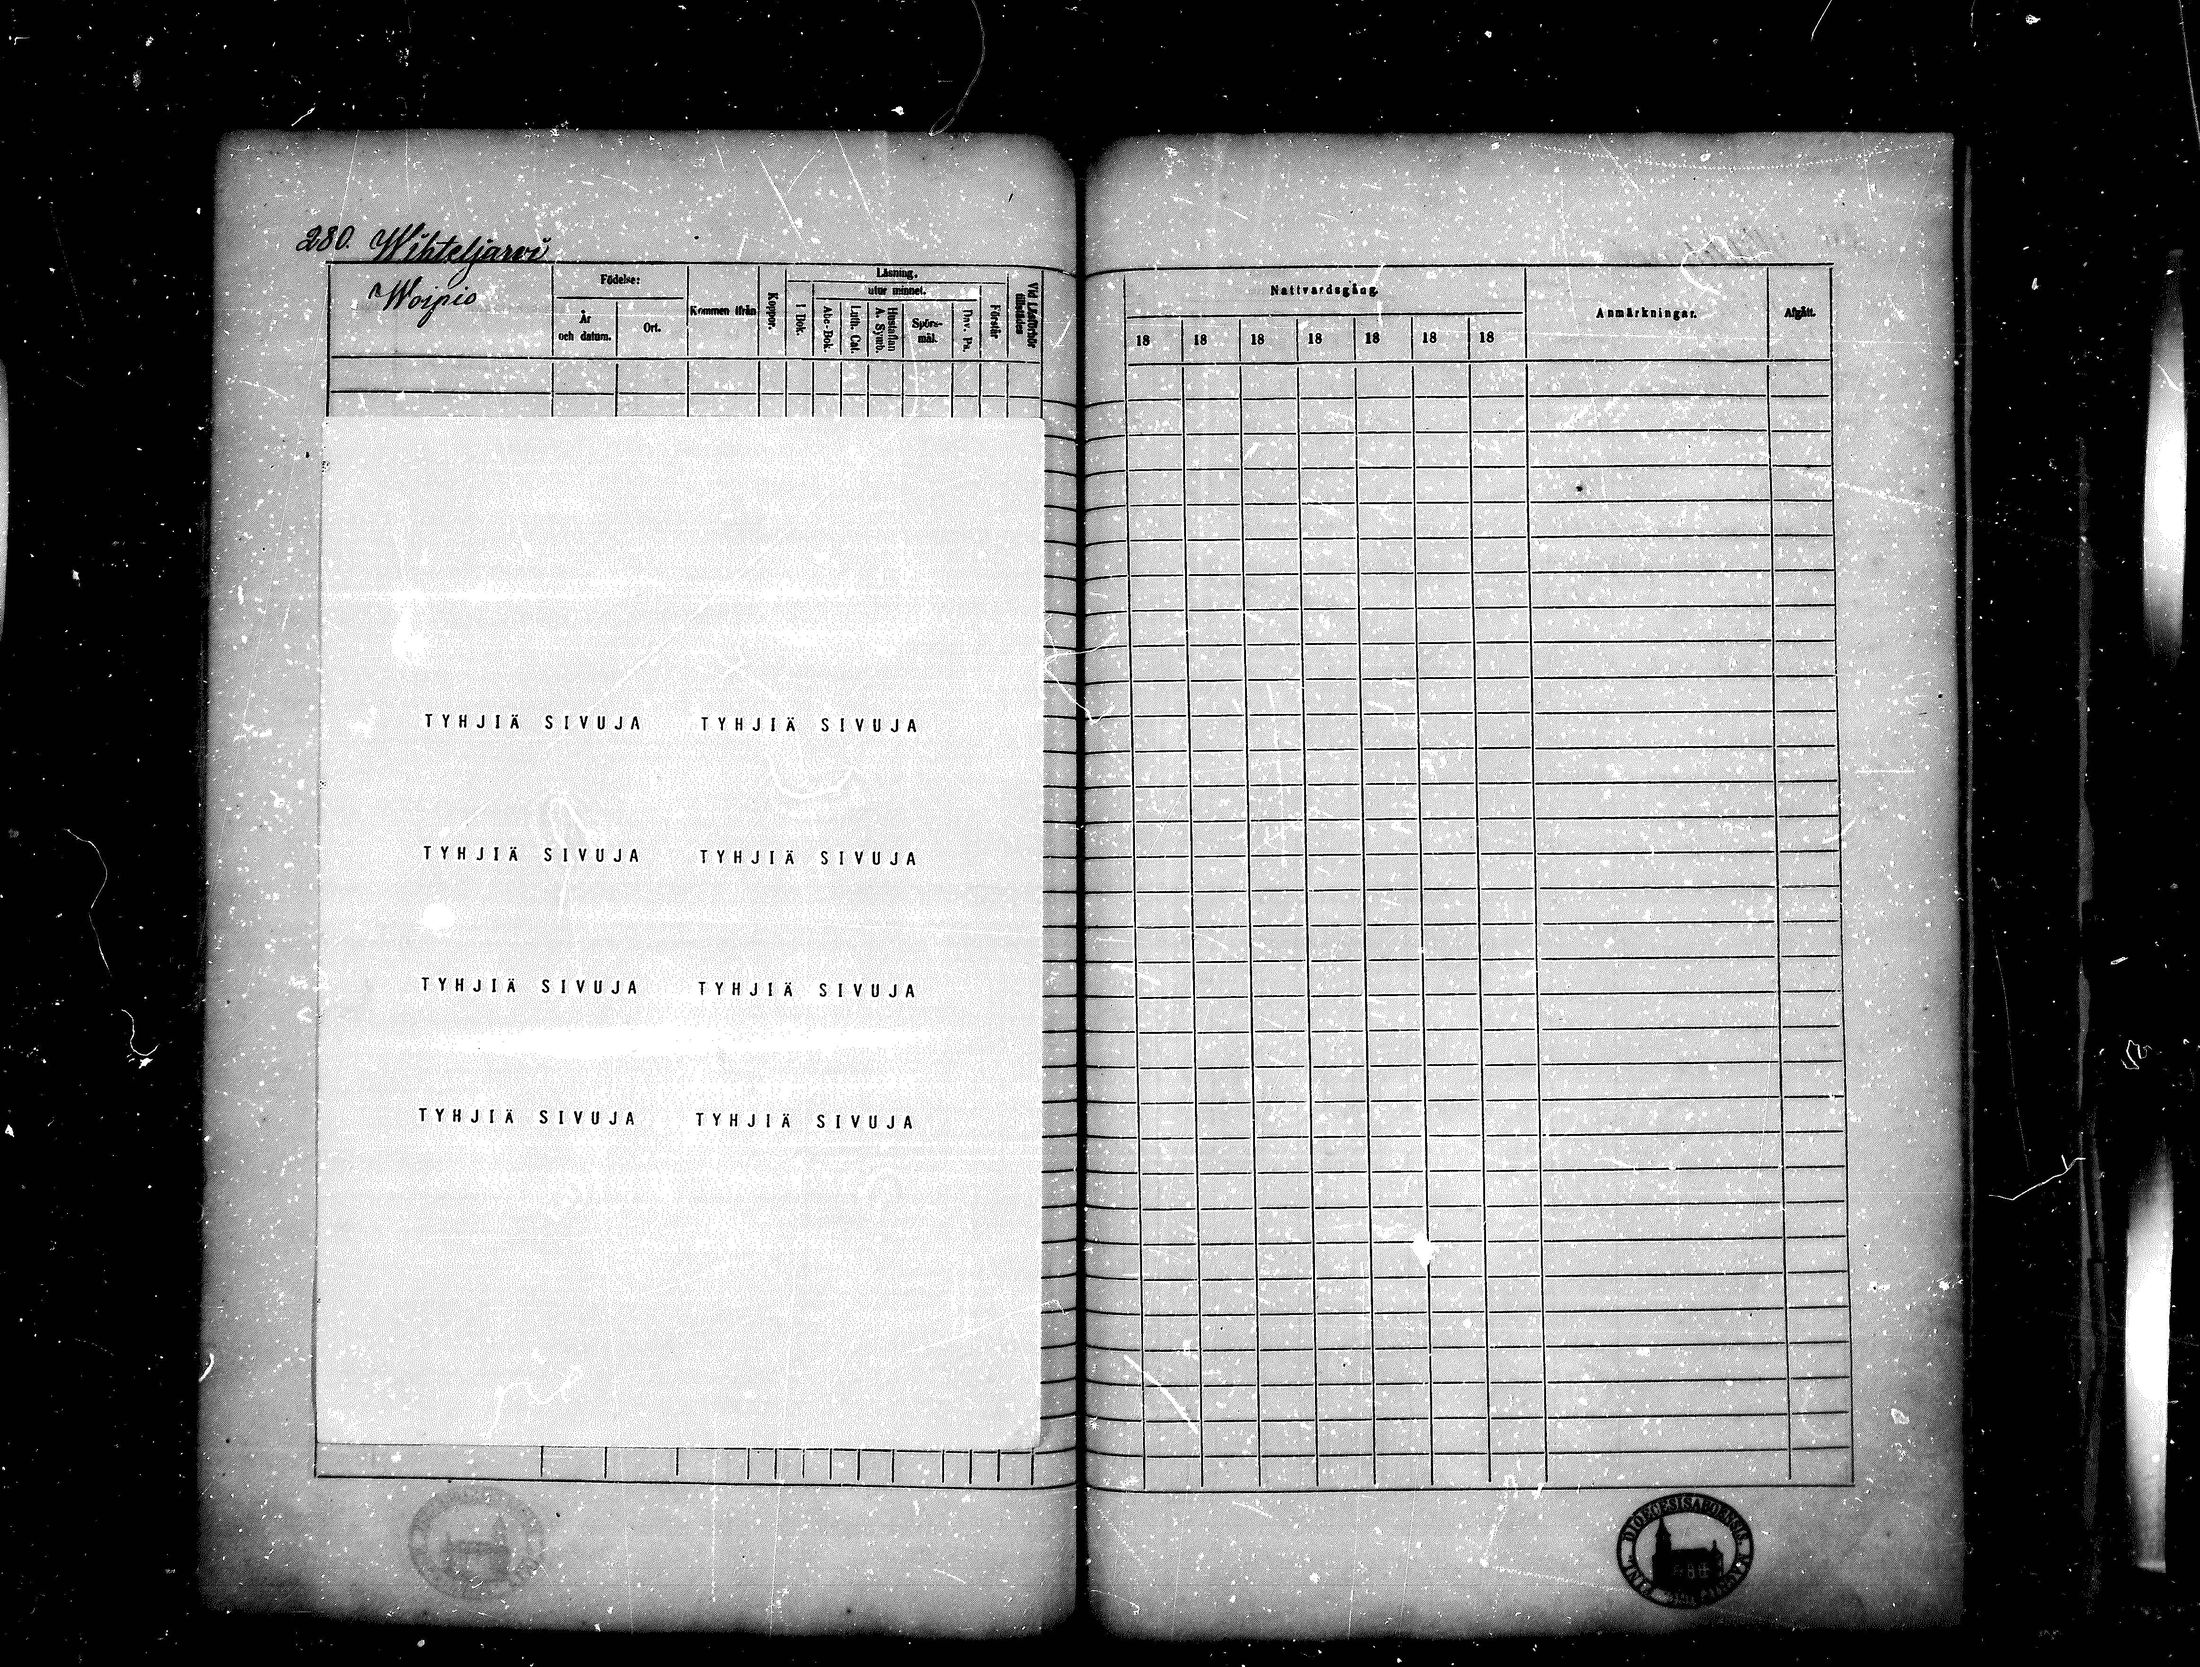 280. Wihteljarwi
Woipio
Födelse:
År
och datum.
Ort.
Kommen ifrån
Koppor.
Läsning,
utur minnet.
I Bok.
Abc-Bok.
Luth. Cat.
Hustaflan
A. Symb.
Spörs-
mål.
Dav. Ps.
Förstår
Vid Läsförhör
Nattvardsgång.
18 18 18 18 18 18 18
Anmärkningar.
Afgått.
TYHJIÄ SIVUJA TYHJIÄ SIVUJA
TYHJIÄ SIVUJA TYHJIÄ SIVUJA
TYHJIÄ SIVUJA TYHJIÄ SIVUJA
TYHJIÄ SIVUJA TYHJIÄ SIVUJA